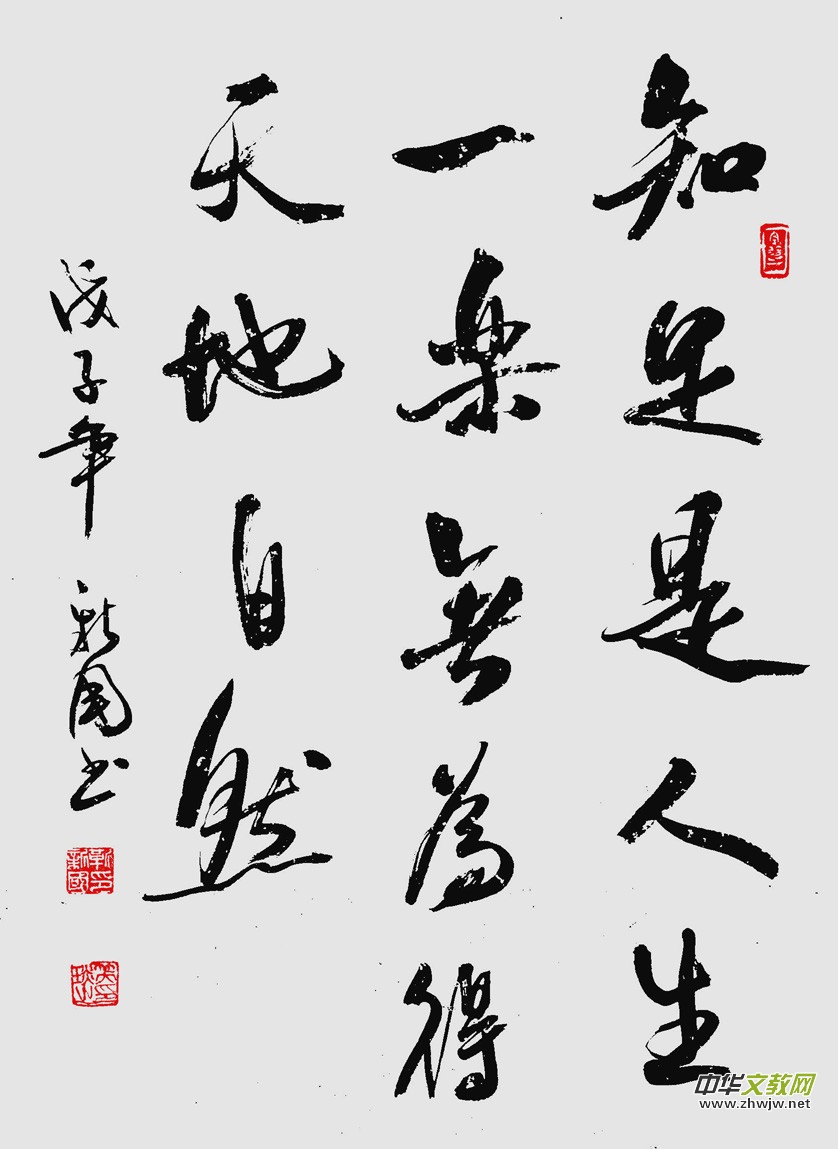 知足是人生
一楽無為得
天地自然
庚子年 新國书
中华文教网
www.zhwjw.net